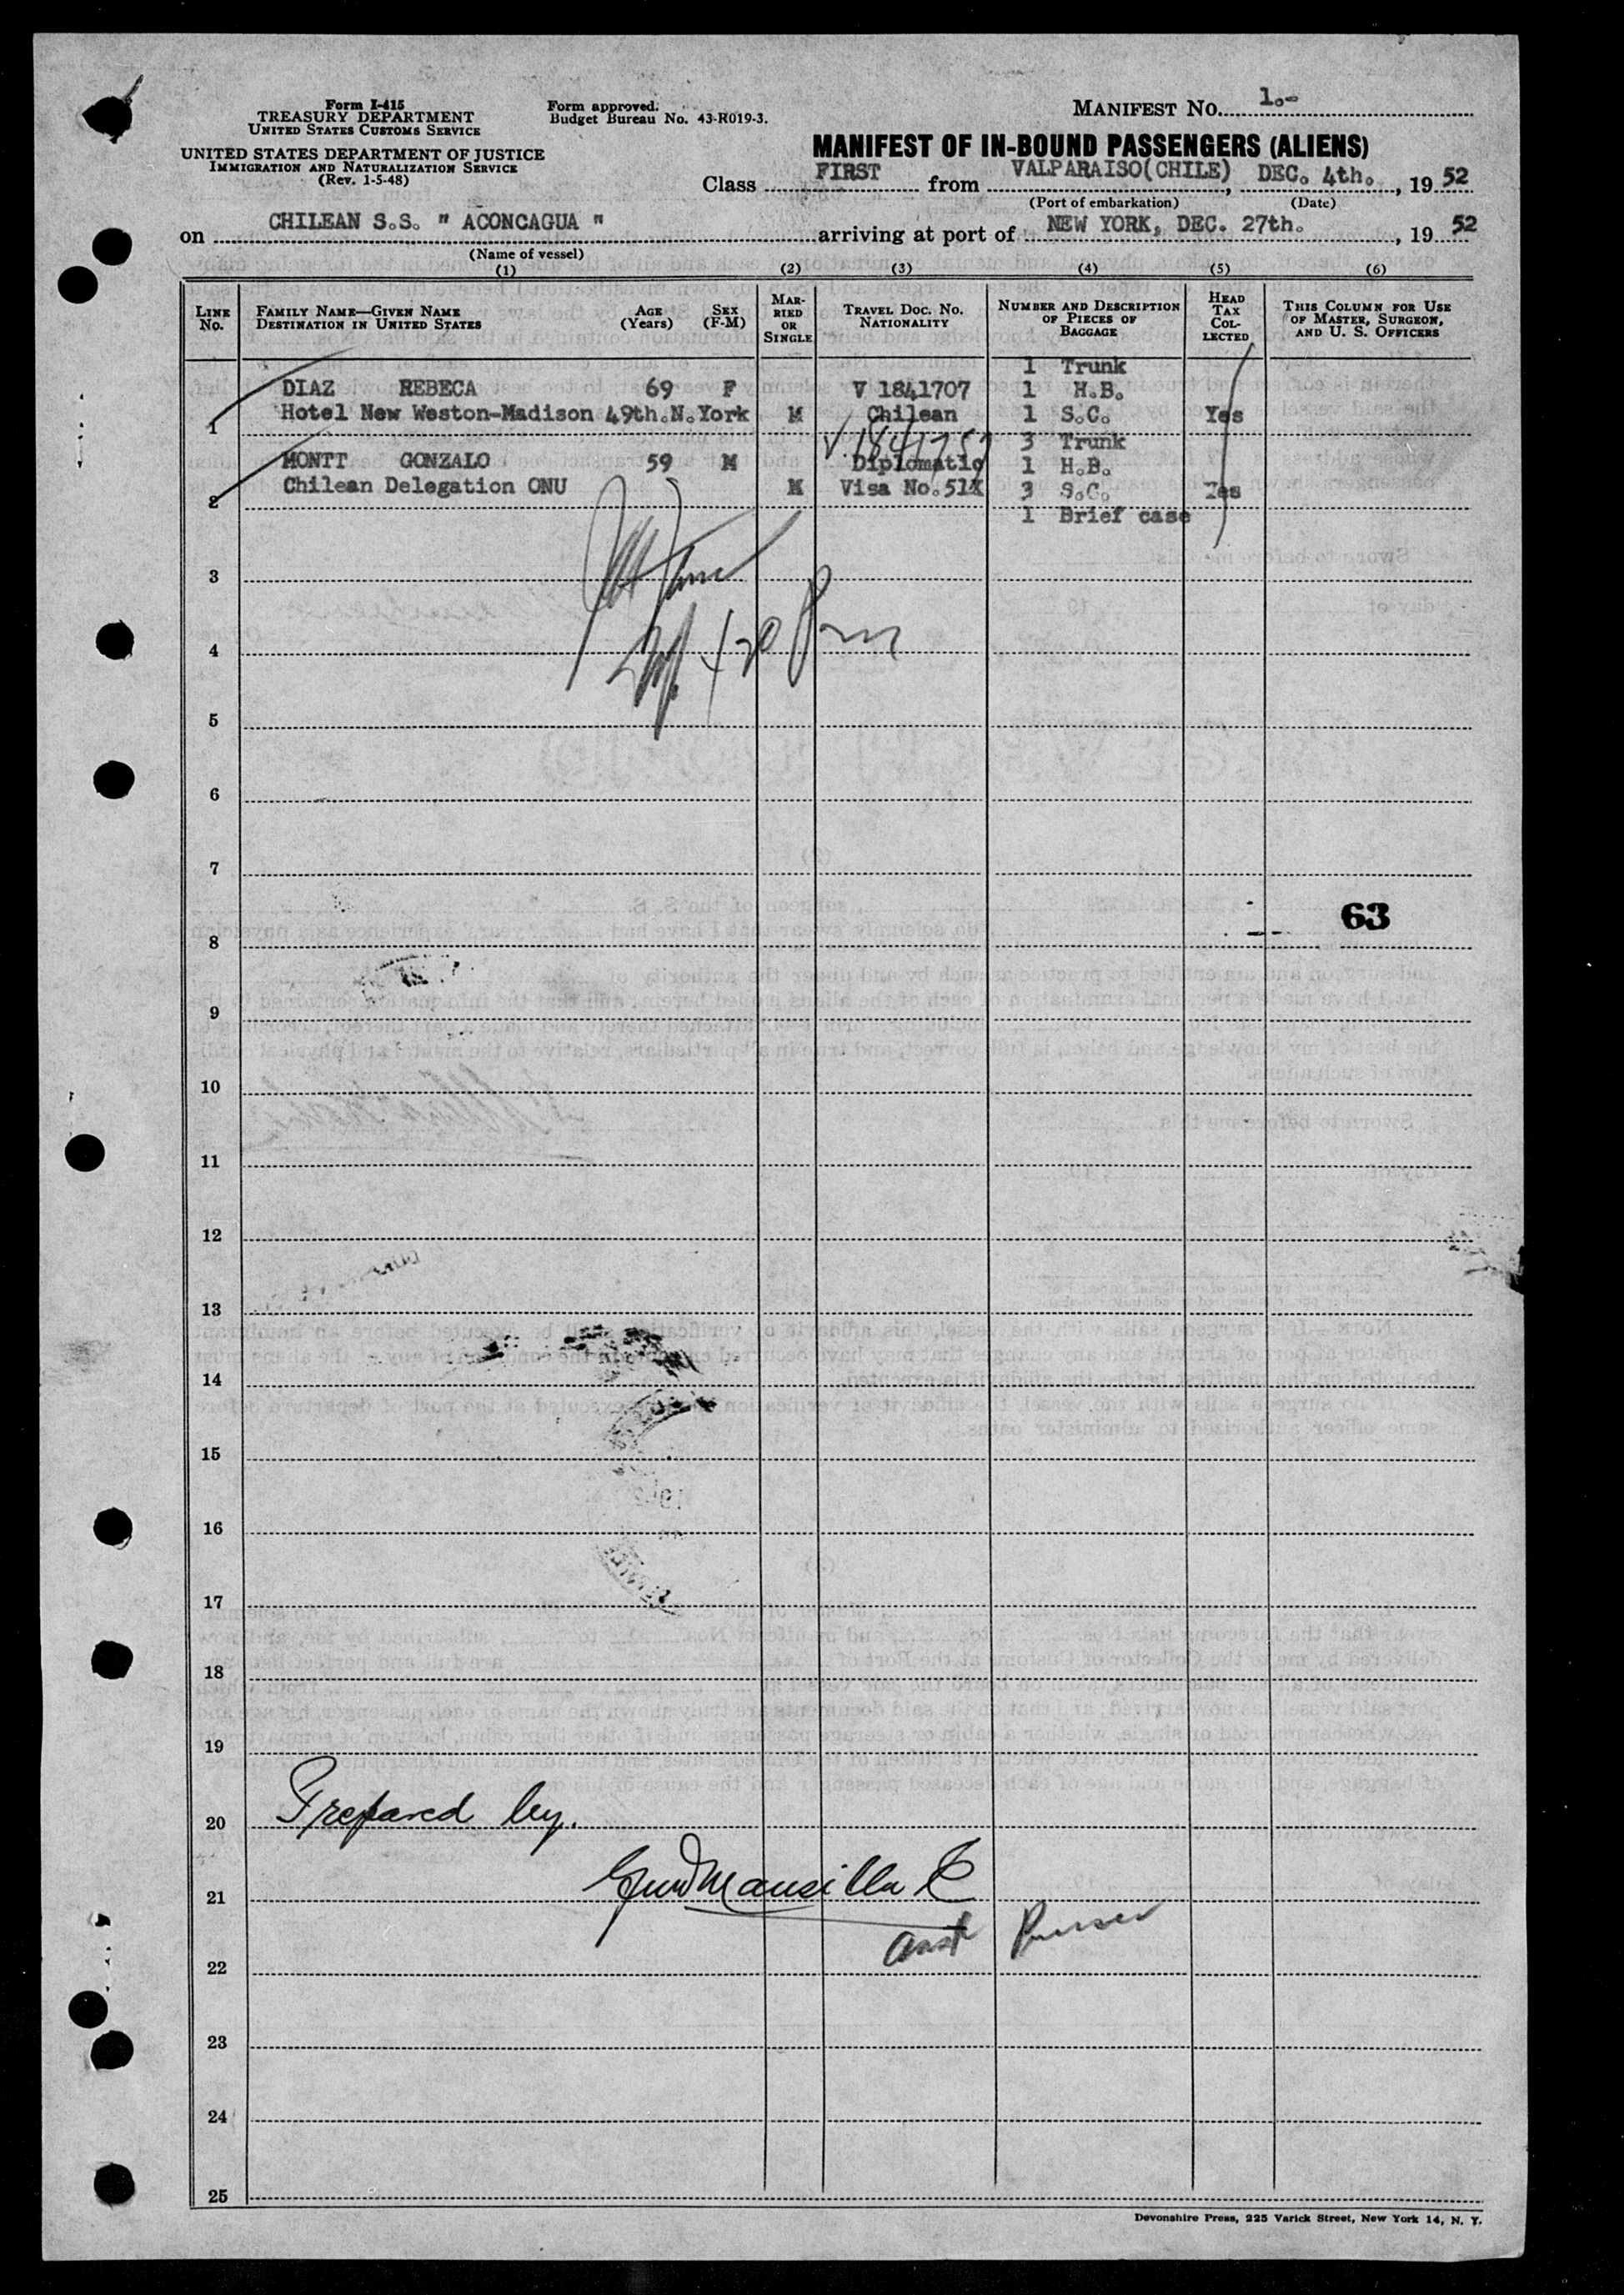 Form I-415
TREASURY DEPARTMENT
UNITED STATES CUSTOMS SERVICE
UNITED STATES DEPARTMENT OF JUSTICE
IMMIGRATION AND NATURALIZATION SERVICE
(Rev. 1-5-48)
Form approved.
Budget Bureau No. 43-R019-3.
MANIFEST NO. 1.-
MANIFEST OF IN-BOUND PASSENGERS (ALIENS)
Class FIRST from VALPARAISO(CHILE), DEC. 4th., 19 52
(Port of embarkation) (Date)
on CHILEAN S.S. " ACONCAGUA " arriving at port of NEW YORK, DEC. 27th., 19 52
(Name of vessel)
(1) (2) (3) (4) (5) (6)
LINE No. FAMILY NAME—GIVEN NAME DESTINATION IN UNITED STATES AGE (Years) SEX (F-M) MARRIED OR SINGLE TRAVEL DOC. NO. NATIONALITY NUMBER AND DESCRIPTION OF PIECES OF BAGGAGE HEAD TAX COLLECTED THIS COLUMN FOR USE OF MASTER, SURGEON, AND U. S. OFFICERS
1 Trunk
DIAZ REBECA 69 F V 1841707 1 H.B.
Hotel New Weston-Madison 49th.N.York M Chilean 1 S.C. Yes
1
V.1841757 3 Trunk
MONTT GONZALO 59 M Diplomatic 1 H.B.
Chilean Delegation ONU M Visa No.51X 3 S.C. Yes
2
1 Brief case
3
4
420 Pm
5
6
7
63
8
9
10
11
12
13
14
15
16
17
18
19
20 Prepared by.
21 Mansilla C
Asst Purser
22
23
24
25
Devonshire Press, 225 Varick Street, New York 14, N. Y.